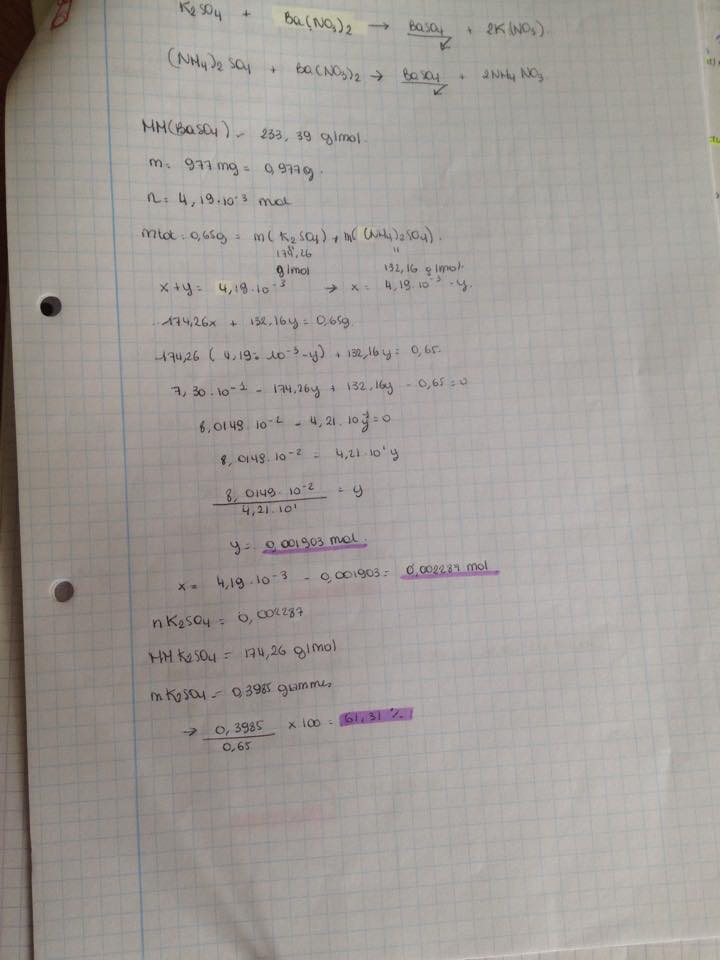 K2SO4 + Ba(NO3)2 → BaSO4 + 2K(NO3).
(NH4)2 SO4 + Ba(NO3)2 → BaSO4 + 2NH4 NO3
MM(BaSO4) = 233,39 g/mol.
m = 977 mg = 0,977g.
n = 4,19·10⁻³ mol
mtot = 0,65g = m(K2SO4) + m((NH4)2SO4).
174,26 g/mol 132,16 g/mol
x+y = 4,19·10⁻³ → x = 4,19·10⁻³ - y.
174,26x + 132,16y = 0,65g
174,26 (4,19·10⁻³ - y) + 132,16y = 0,65.
7,30·10⁻¹ - 174,26y + 132,16y - 0,65 = 0
8,0149·10⁻² - 4,21·10¹y = 0
8,0149·10⁻² = 4,21·10¹ y
8,0149·10⁻² / 4,21·10¹ = y
y = 0,001903 mol.
x = 4,19·10⁻³ - 0,001903 = 0,002287 mol
nK2SO4 = 0,002287
MM K2SO4 = 174,26 g/mol
mK2SO4 = 0,3985 grammes
→ 0,3985 / 0,65 × 100 = 61,31 %